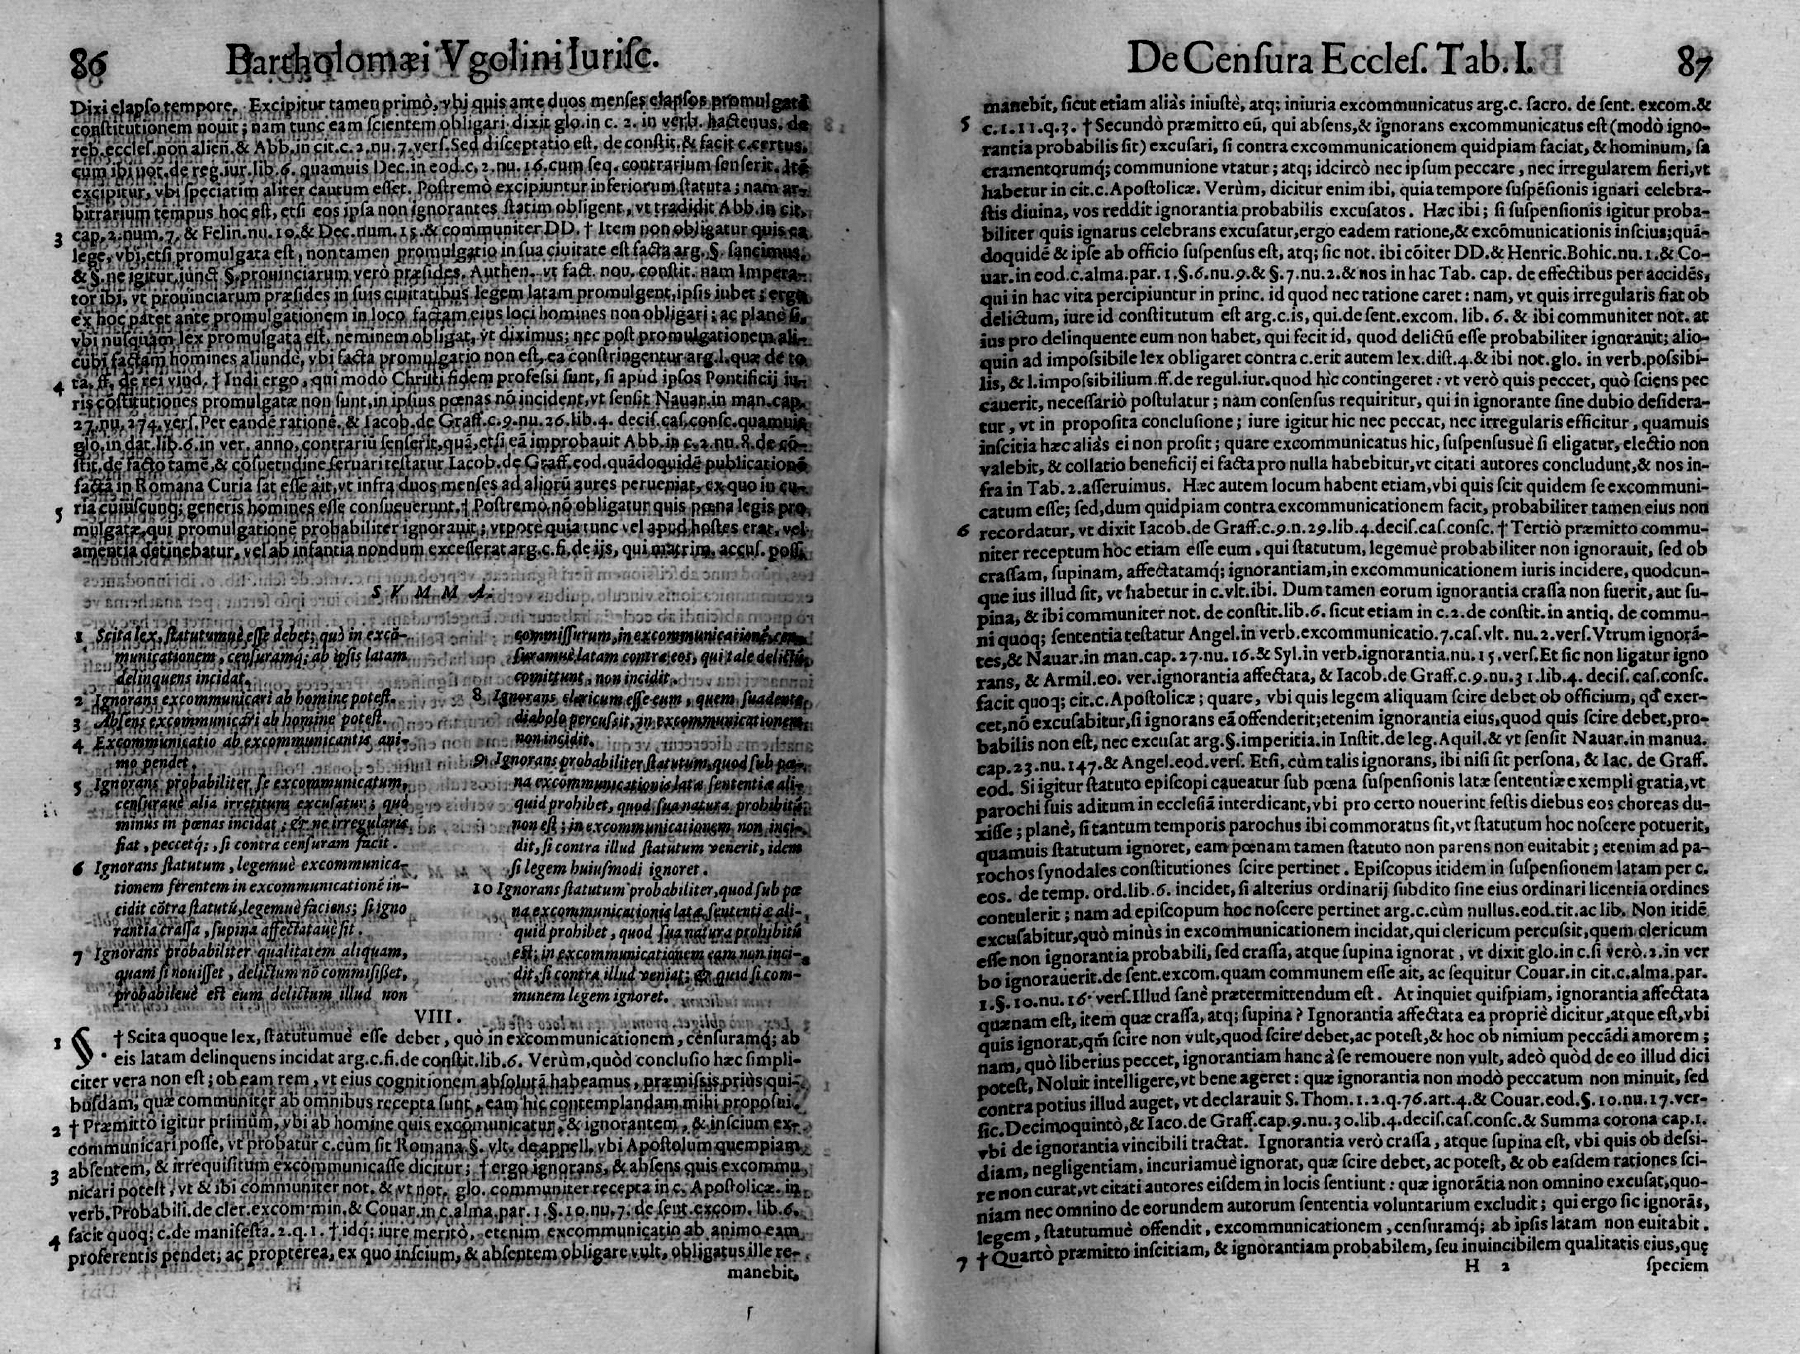 86 Bartholomæi Vgolini Iurisc.
Dixi elapso tempore. Excipitur tamen primò, vbi quis ante duos menses elapsos promulgatā
constitutionem nouit; nam tunc eam scientem obligari dixit glo. in c. 2. in verb. hactenus. de
reb. eccles. non alien. & Abb. in cit. c. 2. nu. 7. vers. Sed disceptatio est. de constit. & facit c. certus.
cum ibi not. de reg. iur. lib. 6. quamuis Dec. in eod. c. 2. nu. 16. cum seq. contrarium senserit. Itē
excipitur, vbi speciatim aliter cautum esset. Postremò excipiuntur inferiorum statuta; nam ar-
bitrarium tempus hoc est, etsi eos ipsa non ignorantes statim obligent, vt tradidit Abb. in cit.
3 cap. 2. num. 7. & Felin. nu. 10. & Dec. num. 15. & communiter DD. † Item non obligatur quis ea
lege, vbi, etsi promulgata est, non tamen promulgatio in sua ciuitate est facta arg. §. sancimus.
& §. ne igitur, iunct §. prouinciarum verò præsides. Authen. vt fact. nou. constit. nam Impera-
tor ibi, vt prouinciarum præsides in suis ciuitatibus legem latam promulgent, ipsis iubet; ergo
ex hoc patet ante promulgationem in loco factam eius loci homines non obligari; ac planè si
vbi nusquam lex promulgata est, neminem obligat, vt diximus; nec post promulgationem ali-
cubi factam homines aliunde, vbi facta promulgatio non est, ea constringentur arg. l. quæ de to
4 ta. ff. de rei vind. † Indi ergo, qui modò Christi fidem professi sunt, si apud ipsos Pontificij iu-
ris cōstitutiones promulgatæ non sunt, in ipsius pœnas nō incident, vt sensit Nauar. in man. cap.
27. nu. 274. vers. Per eandē rationē. & Iacob. de Graff. c. 9. nu. 26. lib. 4. decis. cas. consc. quamuis
glo. in dat. lib. 6. in ver. anno. contrariū senserit, quā, etsi eā improbauit Abb. in c. 2. nu. 8. de cō-
stit. de facto tamē, & cōsuetudine seruari testatur Iacob. de Graff. eod. quādoquidē publicationē
factā in Romana Curia sat esse ait, vt infra duos menses ad aliorū aures perueniat, ex quo in cu-
5 ria cuiuscunq; generis homines esse consueuerunt. † Postremò nō obligatur quis pœna legis pro
mulgatæ, qui promulgationē probabiliter ignorauit; vtpote quia tunc vel apud hostes erat, vel
amentia detinebatur, vel ab infantia nondum excesserat arg. c. fi. de ijs, qui matrim. accus. poss.
SVMMA.
1 Scita lex, statutumuè esse debet; quò in excō-
municationem, censuramq́; ab ipsis latam
delinquens incidat.
2 Ignorans excommunicari ab homine potest.
3 Absens excommunicari ab homine potest.
4 Excommunicatio ab excommunicantis ani-
mo pendet.
5 Ignorans probabiliter se excommunicatum,
censurauè alia irretitum excusatur; quo
minus in pœnas incidat; & ne irregularis
fiat, peccetq́;, si contra censuram facit.
6 Ignorans statutum, legemuè excommunica-
tionem ferentem in excommunicationē in-
cidit cōtra statutū, legemuè faciens; si igno
rantia crassa, supina affectataue sit.
7 Ignorans probabiliter qualitatem aliquam,
quam si nouisset, delictum nō commisisset,
probabileuè est eum delictum illud non
commissurum, in excommunicationē, cen-
suramuè latam contra eos, qui tale delictū
comittunt, non incidit.
8 Ignorans clericum esse eum, quem suadente
diabolo percussit, in excommunicationem
non incidit.
9 Ignorans probabiliter statutum, quod sub pœ-
na excōmunicationis latæ sententiæ ali-
quid prohibet, quod sua natura prohibitū
non est; in excommunicationem non inci-
dit, si contra illud statutum venerit, idem
si legem huiusmodi ignoret.
10 Ignorans statutum probabiliter, quod sub pœ
na excommunicationis latæ sententiæ ali-
quid prohibet, quod sua natura prohibitū
est, in excommunicationem eam non inci-
dit, si contra illud veniat; & quid si com-
munem legem ignoret.
VIII.
1 § . † Scita quoque lex, statutumuè esse debet, quò in excommunicationem, censuramq́; ab
eis latam delinquens incidat arg. c. fi. de constit. lib. 6. Verùm, quòd conclusio hæc simpli-
citer vera non est; ob eam rem, vt eius cognitionem absolutā habeamus, præmissis priùs qui-
busdam, quæ communiter ab omnibus recepta sunt, eam hic contemplandam mihi proposui.
2 † Præmitto igitur primùm, vbi ab homine quis excōmunicatur, & ignorantem, & inscium ex-
communicari posse, vt probatur c. cum sit Romana §. vlt. de appell. vbi Apostolum quempiam
3 absentem, & irrequisitum excommunicasse dicitur; † ergo ignorans, & absens quis excommu
nicari potest, vt & ibi communiter not. & vt not. glo. communiter recepta in c. Apostolicæ. in
verb. Probabili. de cler. excom. min. & Couar. in c. alma. par. 1. §. 10. nu. 7. de sent. excom. lib. 6.
4 facit quoq; c. de manifesta. 2. q. 1. † idq́; iure meritò, etenim excommunicatio ab animo eam
proferentis pendet; ac propterea, ex quo inscium, & absentem obligare vult, obligatus ille re-
manebit,
De Censura Eccles. Tab. I. 87
manebit, sicut etiam aliàs iniustè, atq; iniuria excommunicatus arg. c. sacro. de sent. excom. &
5 c. 1. 11. q. 3. † Secundò præmitto eū, qui absens, & ignorans excommunicatus est (modò igno-
rantia probabilis sit) excusari, si contra excommunicationem quidpiam faciat, & hominum, sa
cramentorumq́; communione vtatur; atq; idcircò nec ipsum peccare, nec irregularem fieri, vt
habetur in cit. c. Apostolicæ. Verùm, dicitur enim ibi, quia tempore suspēsionis ignari celebra-
stis diuina, vos reddit ignorantia probabilis excusatos. Hæc ibi; si suspensionis igitur proba-
biliter quis ignarus celebrans excusatur, ergo eadem ratione, & excōmunicationis inscius; quā-
doquidē & ipse ab officio suspensus est, atq; sic not. ibi cōiter DD. & Henric. Bohic. nu. 1. & Co-
uar. in eod. c. alma. par. 1. §. 6. nu. 9. & §. 7. nu. 2. & nos in hac Tab. cap. de effectibus per accidēs,
qui in hac vita percipiuntur in princ. id quod nec ratione caret: nam, vt quis irregularis fiat ob
delictum, iure id constitutum est arg. c. is, qui. de sent. excom. lib. 6. & ibi communiter not. at
ius pro delinquente eum non habet, qui fecit id, quod delictū esse probabiliter ignorauit; alio-
quin ad impossibile lex obligaret contra c. erit autem lex. dist. 4. & ibi not. glo. in verb. possibi-
lis, & l. impossibilium. ff. de regul. iur. quod hic contingeret: vt verò quis peccet, quò sciens pec
cauerit, necessariò postulatur; nam consensus requiritur, qui in ignorante sine dubio desidera-
tur, vt in proposita conclusione; iure igitur hic nec peccat, nec irregularis efficitur, quamuis
inscitia hæc aliàs ei non prosit; quare excommunicatus hic, suspensusuè si eligatur, electio non
valebit, & collatio beneficij ei facta pro nulla habebitur, vt citati autores concludunt, & nos in-
fra in Tab. 2. asseruimus. Hæc autem locum habent etiam, vbi quis scit quidem se excommuni-
catum esse; sed, dum quidpiam contra excommunicationem facit, probabiliter tamen eius non
6 recordatur, vt dixit Iacob. de Graff. c. 9. n. 29. lib. 4. decis. cas. consc. † Tertiò præmitto commu-
niter receptum hoc etiam esse eum, qui statutum, legemuè probabiliter non ignorauit, sed ob
crassam, supinam, affectatamq́; ignorantiam, in excommunicationem iuris incidere, quodcun-
que ius illud sit, vt habetur in c. vlt. ibi. Dum tamen eorum ignorantia crassa non fuerit, aut su-
pina, & ibi communiter not. de constit. lib. 6. sicut etiam in c. 2. de constit. in antiq. de commu-
ni quoq; sententia testatur Angel. in verb. excommunicatio. 7. cas. vlt. nu. 2. vers. Vtrum ignorā-
tes, & Nauar. in man. cap. 27. nu. 16. & Syl. in verb. ignorantia. nu. 15. vers. Et sic non ligatur igno
rans, & Armil. eo. ver. ignorantia affectata, & Iacob. de Graff. c. 9. nu. 31. lib. 4. decis. cas. consc.
facit quoq; cit. c. Apostolicæ; quare, vbi quis legem aliquam scire debet ob officium, qd̄ exer-
cet, nō excusabitur, si ignorans eā offenderit; etenim ignorantia eius, quod quis scire debet, pro-
babilis non est, nec excusat arg. §. imperitia. in Instit. de leg. Aquil. & vt sensit Nauar. in manua.
cap. 23. nu. 147. & Angel. eod. vers. Etsi, cùm talis ignorans, ibi nisi sit persona, & Iac. de Graff.
eod. Si igitur statuto episcopi caueatur sub pœna suspensionis latæ sententiæ exempli gratia, vt
parochi suis aditum in ecclesiā interdicant, vbi pro certo nouerint festis diebus eos choreas du-
xisse; planè, si tantum temporis parochus ibi commoratus sit, vt statutum hoc noscere potuerit,
quamuis statutum ignoret, eam pœnam tamen statuto non parens non euitabit; etenim ad pa-
rochos synodales constitutiones scire pertinet. Episcopus itidem in suspensionem latam per c.
eos. de temp. ord. lib. 6. incidet, si alterius ordinarij subdito sine eius ordinari licentia ordines
contulerit; nam ad episcopum hoc noscere pertinet arg. c. cùm nullus. eod. tit. ac lib. Non itidē
excusabitur, quò minùs in excommunicationem incidat, qui clericum percussit, quem clericum
esse non ignorantia probabili, sed crassa, atque supina ignorat, vt dixit glo. in c. si verò. 2. in ver
bo ignorauerit. de sent. excom. quam communem esse ait, ac sequitur Couar. in cit. c. alma. par.
1. §. 10. nu. 16. vers. Illud sanè prætermittendum est. At inquiet quispiam, ignorantia affectata
quænam est, item quæ crassa, atq; supina? Ignorantia affectata ea propriè dicitur, atque est, vbi
quis ignorat, qm̄ scire non vult, quod scire debet, ac potest, & hoc ob nimium peccādi amorem;
nam, quò liberius peccet, ignorantiam hanc à se remouere non vult, adeò quòd de eo illud dici
potest, Noluit intelligere, vt bene ageret: quæ ignorantia non modò peccatum non minuit, sed
contra potius illud auget, vt declarauit S. Thom. 1. 2. q. 76. art. 4. & Couar. eod. §. 10. nu. 17. ver-
sic. Decimoquintò, & Iaco. de Graff. cap. 9. nu. 30. lib. 4. decis. cas. consc. & Summa corona cap. 1.
vbi de ignorantia vincibili tractat. Ignorantia verò crassa, atque supina est, vbi quis ob desi-
diam, negligentiam, incuriamuè ignorat, quæ scire debet, ac potest, & ob easdem rationes sci-
re non curat, vt citati autores eisdem in locis sentiunt: quæ ignorātia non omnino excusat, quo-
niam nec omnino de eorundem autorum sententia voluntarium excludit; qui ergo sic ignorās,
legem, statutumuè offendit, excommunicationem, censuramq́; ab ipsis latam non euitabit.
7 † Quartò præmitto inscitiam, & ignorantiam probabilem, seu inuincibilem qualitatis eius, quę
H 2 speciem